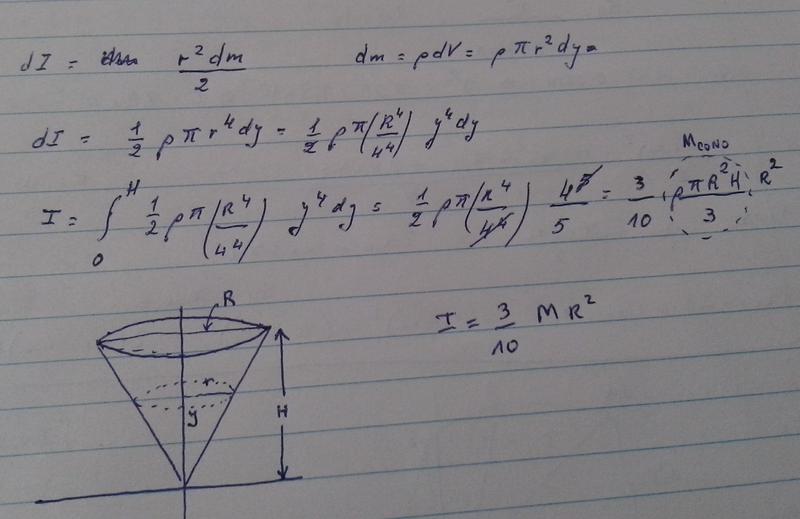 dI = r²dm/2 dm = ρdV = ρπr²dy
dI = 1/2 ρπr⁴dy = 1/2 ρπ(R⁴/H⁴) y⁴dy
I = ∫₀ᴴ 1/2 ρπ(R⁴/H⁴) y⁴dy = 1/2 ρπ(R⁴/H⁴) H⁵/5 = 3/10 ρπR²H/3 R²
MCONO
I = 3/10 MR²
R
r
y
H